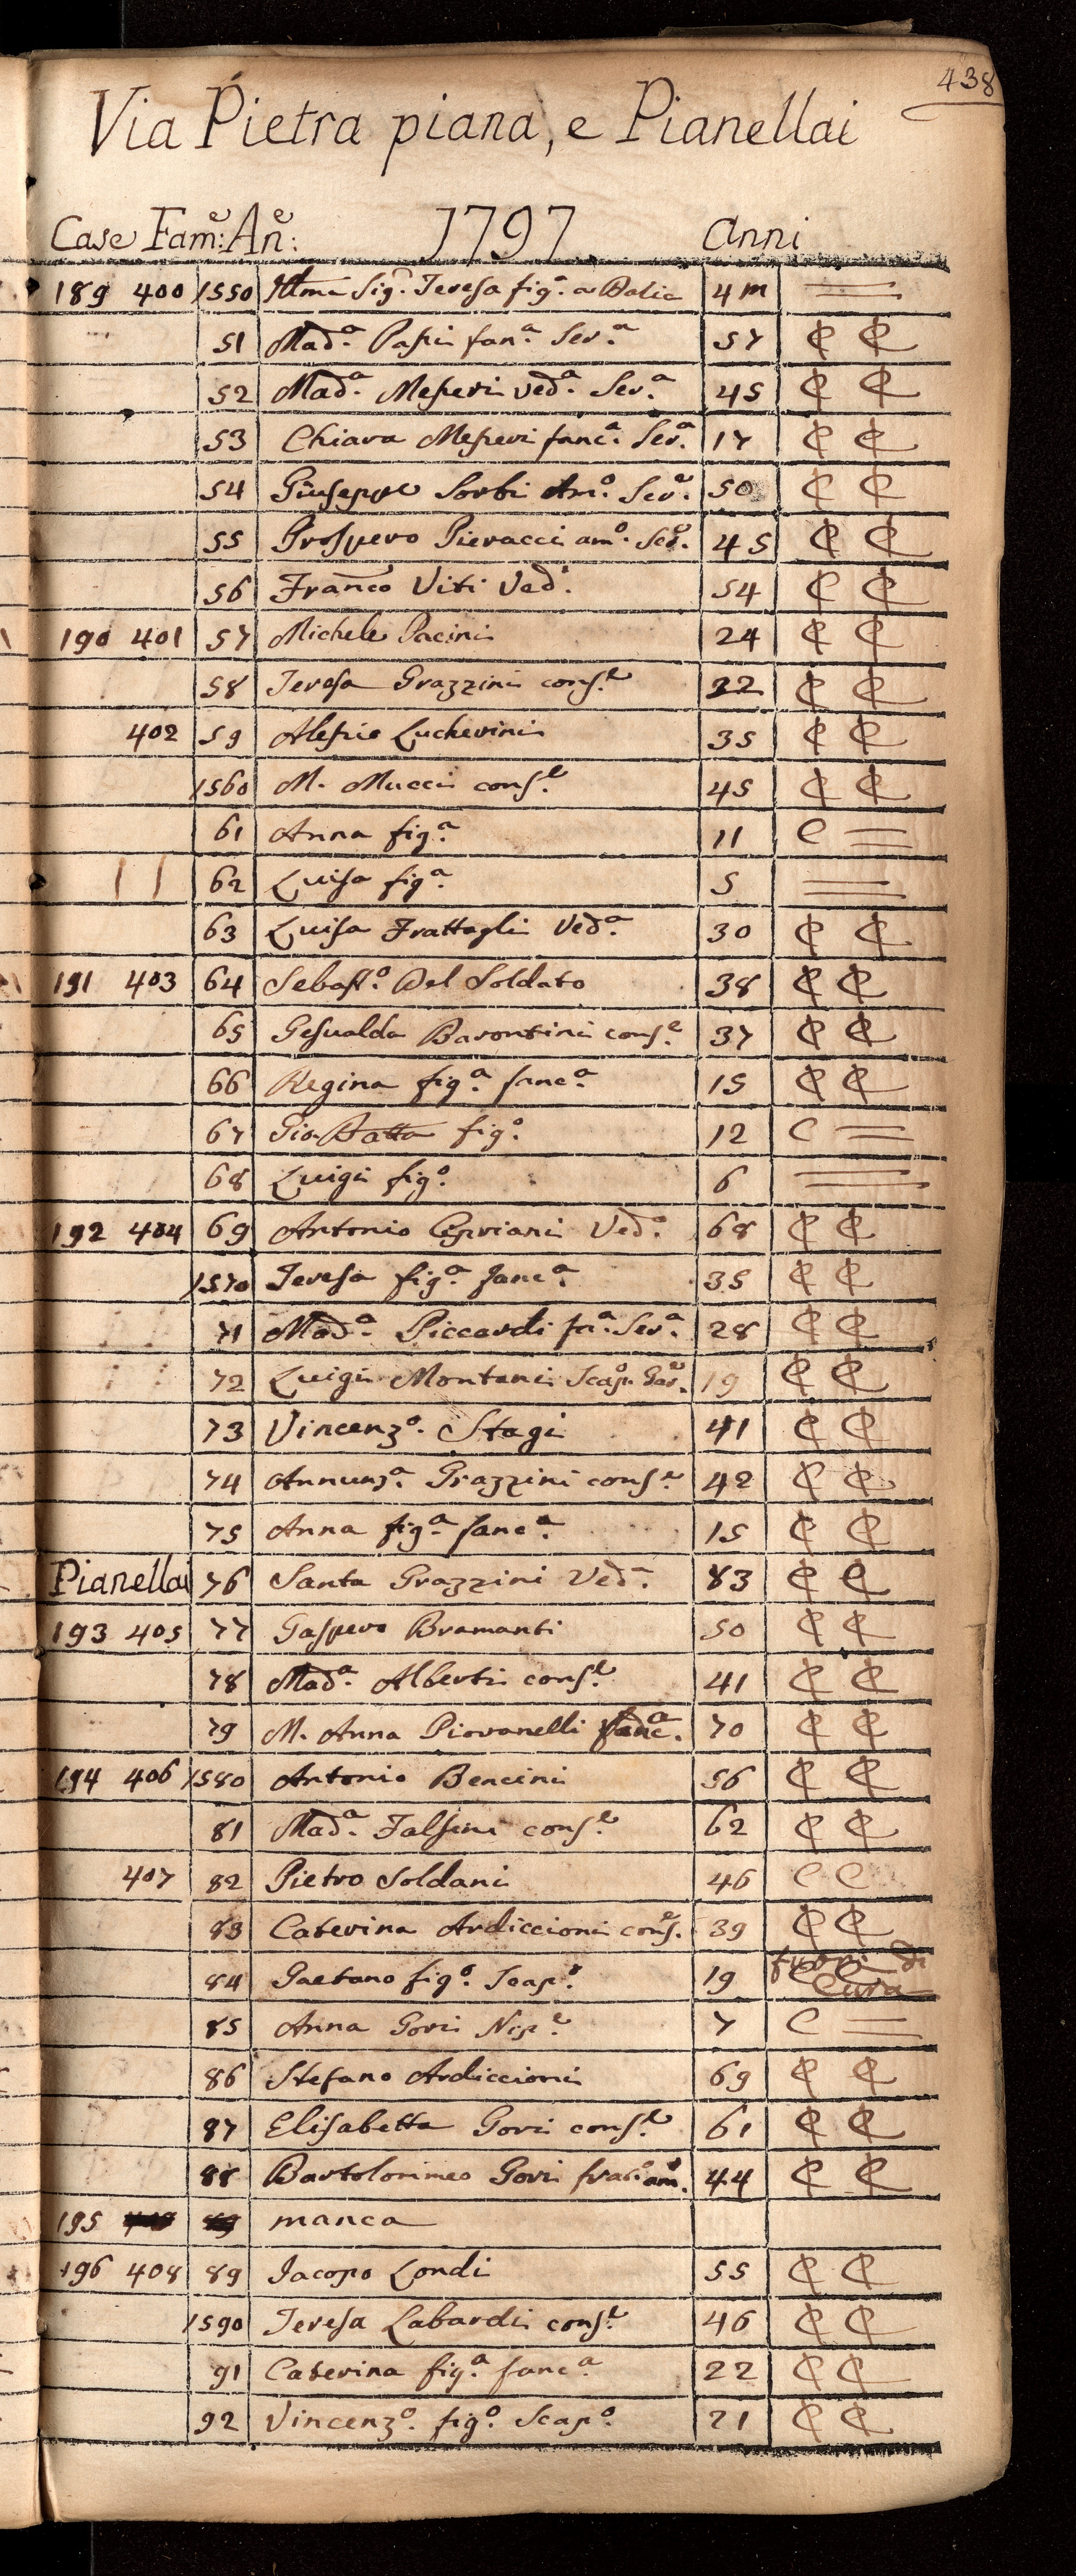 438
Via Pietra piana, e Pianellai
Case Fam:e An:e 1797 Anni
189 400 1550 Illma Sig.a Teresa fig.a a Balia 4 m =
51 Mad.a Papini fan.a Ser.a 57 C C
52 Mad.a Messeri ved.a Ser.a 45 C C
53 Chiara Messeri fanc.a Ser.a 17 C C
54 Giuseppe Sorbi Am.o Ser.e 50 C C
55 Prospero Pieracci am.o Ser.e 45 C C
56 Franco Viti Ved.o 54 C C
190 401 57 Michele Pacini 24 C C
58 Teresa Grazzini cons.e 22 C C
402 59 Alessio Lucherini 35 C C
1560 M. Mucci cons.e 45 C C
61 Anna fig.a 11 C =
62 Luisa fig.a 5 =
63 Luisa Frattagli Ved.a 30 C C
191 403 64 Sebast.o Del Soldato 38 C C
65 Gesualda Barontini cons.e 37 C C
66 Regina fig.a fanc.a 15 C C
67 Gio. Batta fig.o 12 C =
68 Luigi fig.o 6 =
192 404 69 Antonio Cipriani Ved.o 68 C C
1570 Teresa fig.a fanc.a 35 C C
71 Mad.a Piccardi fa.a Ser.a 28 C C
72 Luigi Montani Scap.o 19 C C
73 Vincenz.o Stagi 41 C C
74 Annunz.a Grazzini cons.e 42 C C
75 Anna fig.a fanc.a 15 C C
Pianellai 76 Santa Grazzini Ved.a 83 C C
193 405 77 Gaspero Bramanti 50 C C
78 Mad.a Alberti cons.e 41 C C
79 M. Anna Piovanelli fanc.a 70 C C
194 406 1580 Antonio Bencini 56 C C
81 Mad.a Falsini cons.e 62 C C
407 82 Pietro Soldani 46 C C
83 Caterina Ardiccioni cons.e 39 C C
84 Gaetano fig.o Scap.o 19 fuori di Cura
85 Anna Gori Nip.e 7 C =
86 Stefano Ardiccioni 69 C C
87 Elisabetta Gori cons.e 61 C C
88 Bartolommeo Gori frat.o am.o 44 C C
195 manca
196 408 89 Iacopo Londi 55 C C
1590 Teresa Labardi cons.e 46 C C
91 Caterina fig.a fanc.a 22 C C
92 Vincenz.o fig.o Scap.o 21 C C